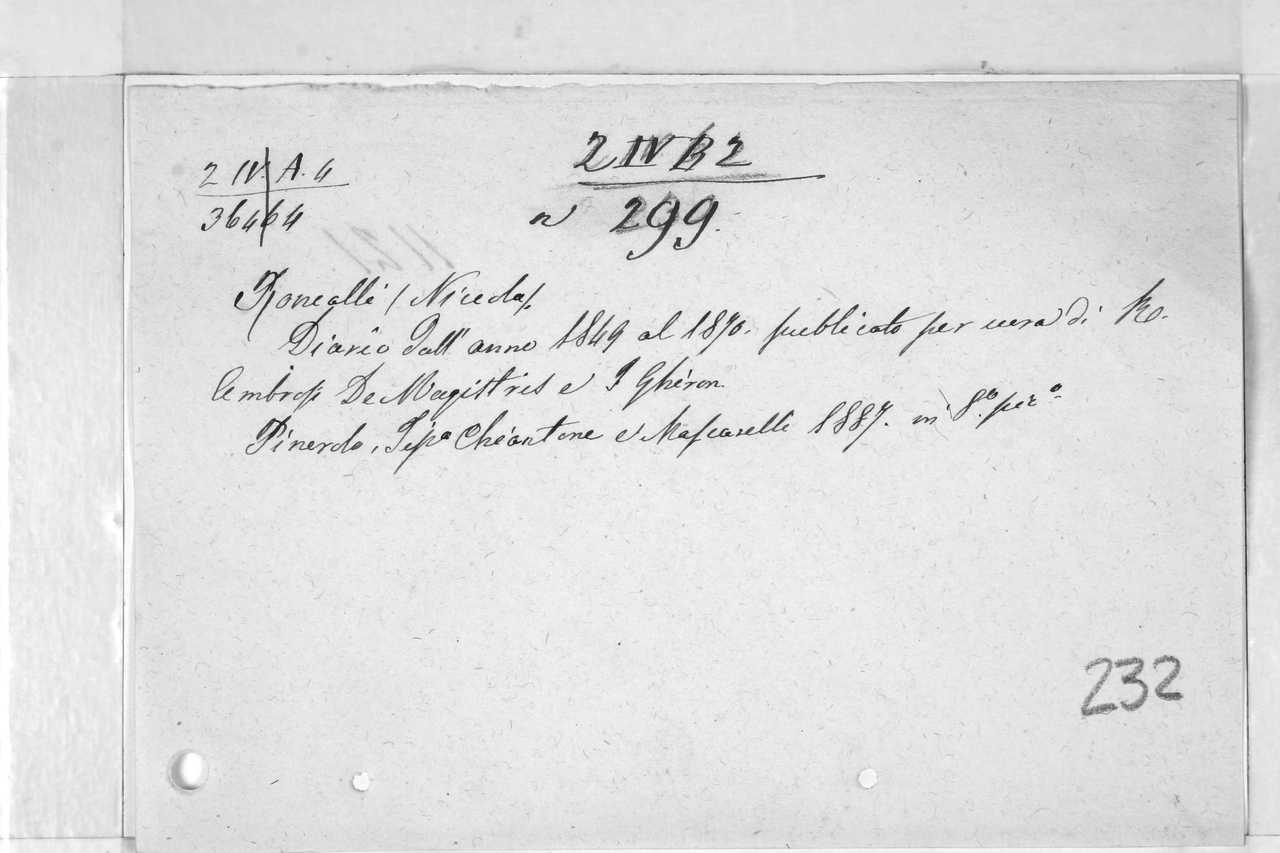 2 IV. A. 4
36464
2 IV B 2
n 299.
Roncalli (Nicola).
Diario dall' anno 1849 al 1870. publicato per cura di R.
Ambrosi De Magistris e I Ghiron.
Pinerolo, Tip.a Chiantore e Mascarelli 1887. in 8.o picc.o
232